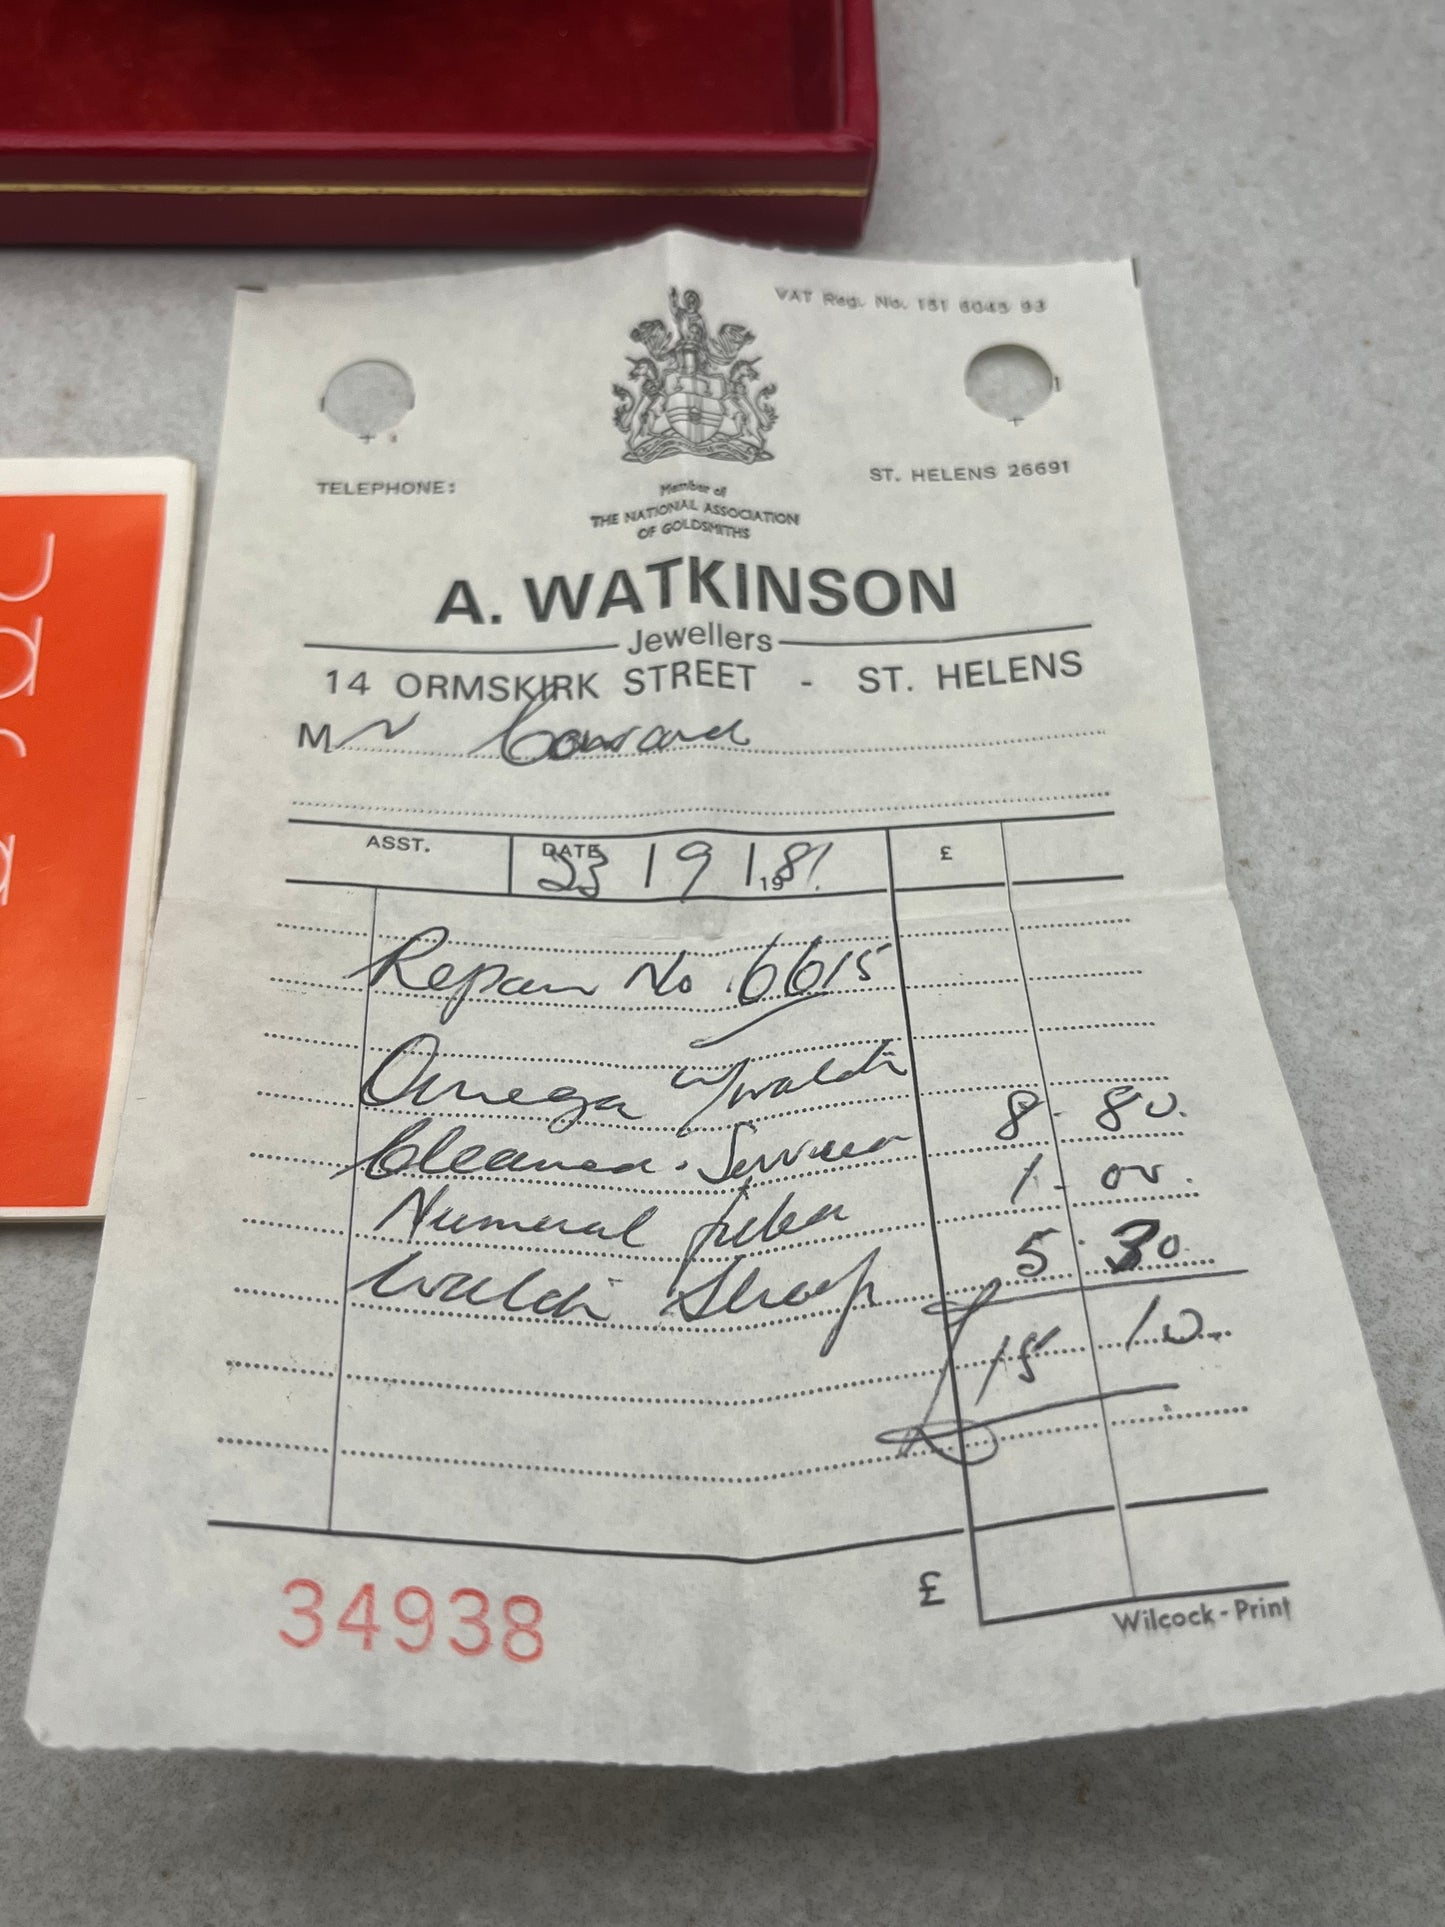 VAT Reg. No. 151 6045 93
TELEPHONE:
ST. HELENS 26691
Member of
THE NATIONAL ASSOCIATION
OF GOLDSMITHS
A. WATKINSON
Jewellers
14 ORMSKIRK STREET - ST. HELENS
Mr
ASST. DATE 23 1 9 1 1981. £
Repair No. 6615
Omega w/watch
Cleaned. Serviced 8-80.
Numeral 1-00.
Watch Strap 5.30
15 10
£
34938
Wilcock-Print